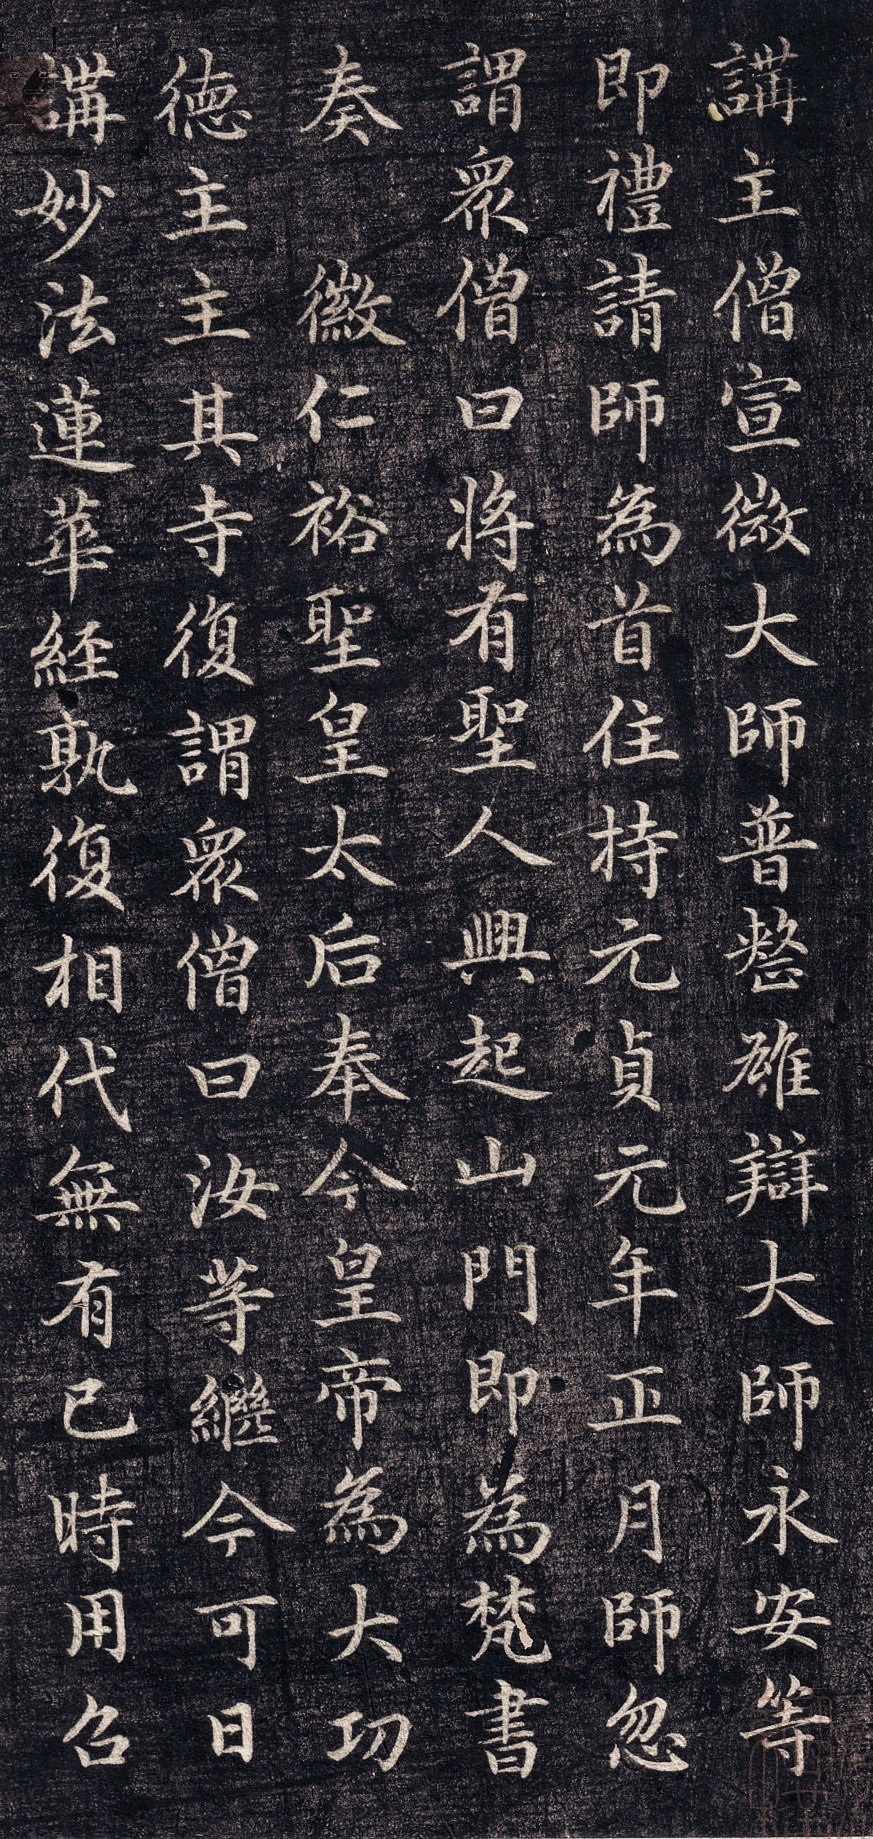 講主僧宣微大師普整雄辯大師永安等
即禮請師為首住持元貞元年正月師忽
謂衆僧曰将有聖人興起山門即為梵書
奏　徽仁裕聖皇太后奉今皇帝為大功
徳主主其寺復謂衆僧曰汝等繼今可日
講妙法蓮華経孰復相代無有已時用召